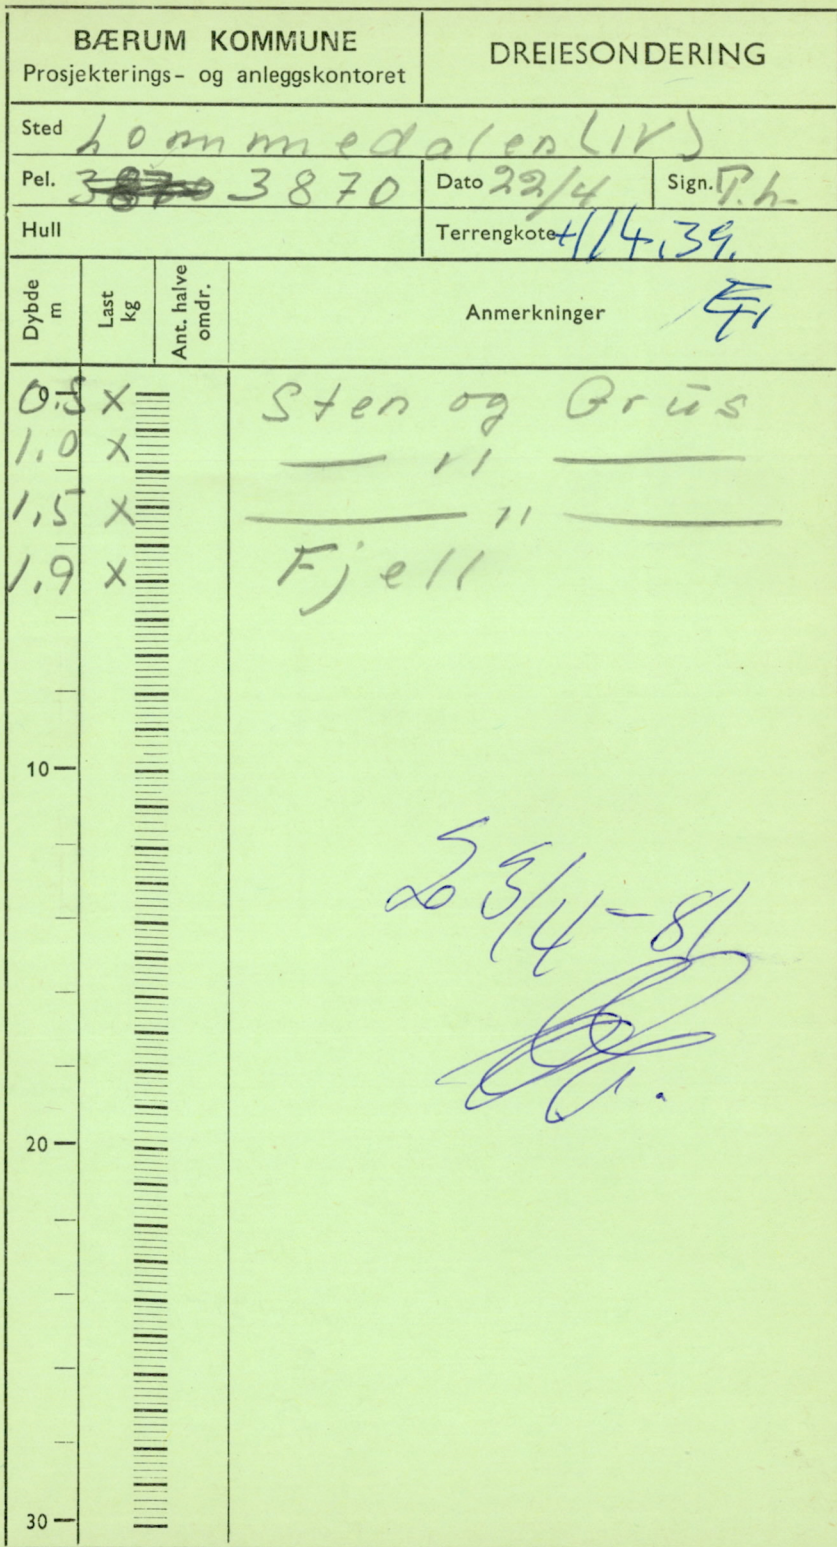 BÆRUM KOMMUNE
Prosjekterings- og anleggskontoret
DREIESONDERING
Sted Lommedalen (IV)
Pel. 3870 Dato 22/4 Sign. T.h.
Hull Terrengkote +114,39.
Dybde m Last kg Ant. halve omdr. Anmerkninger
0
0.5 X Sten og Grus
1.0 X — 11 —
1,5 X — 11 —
1,9 X Fjell
10
23/4-81
20
30